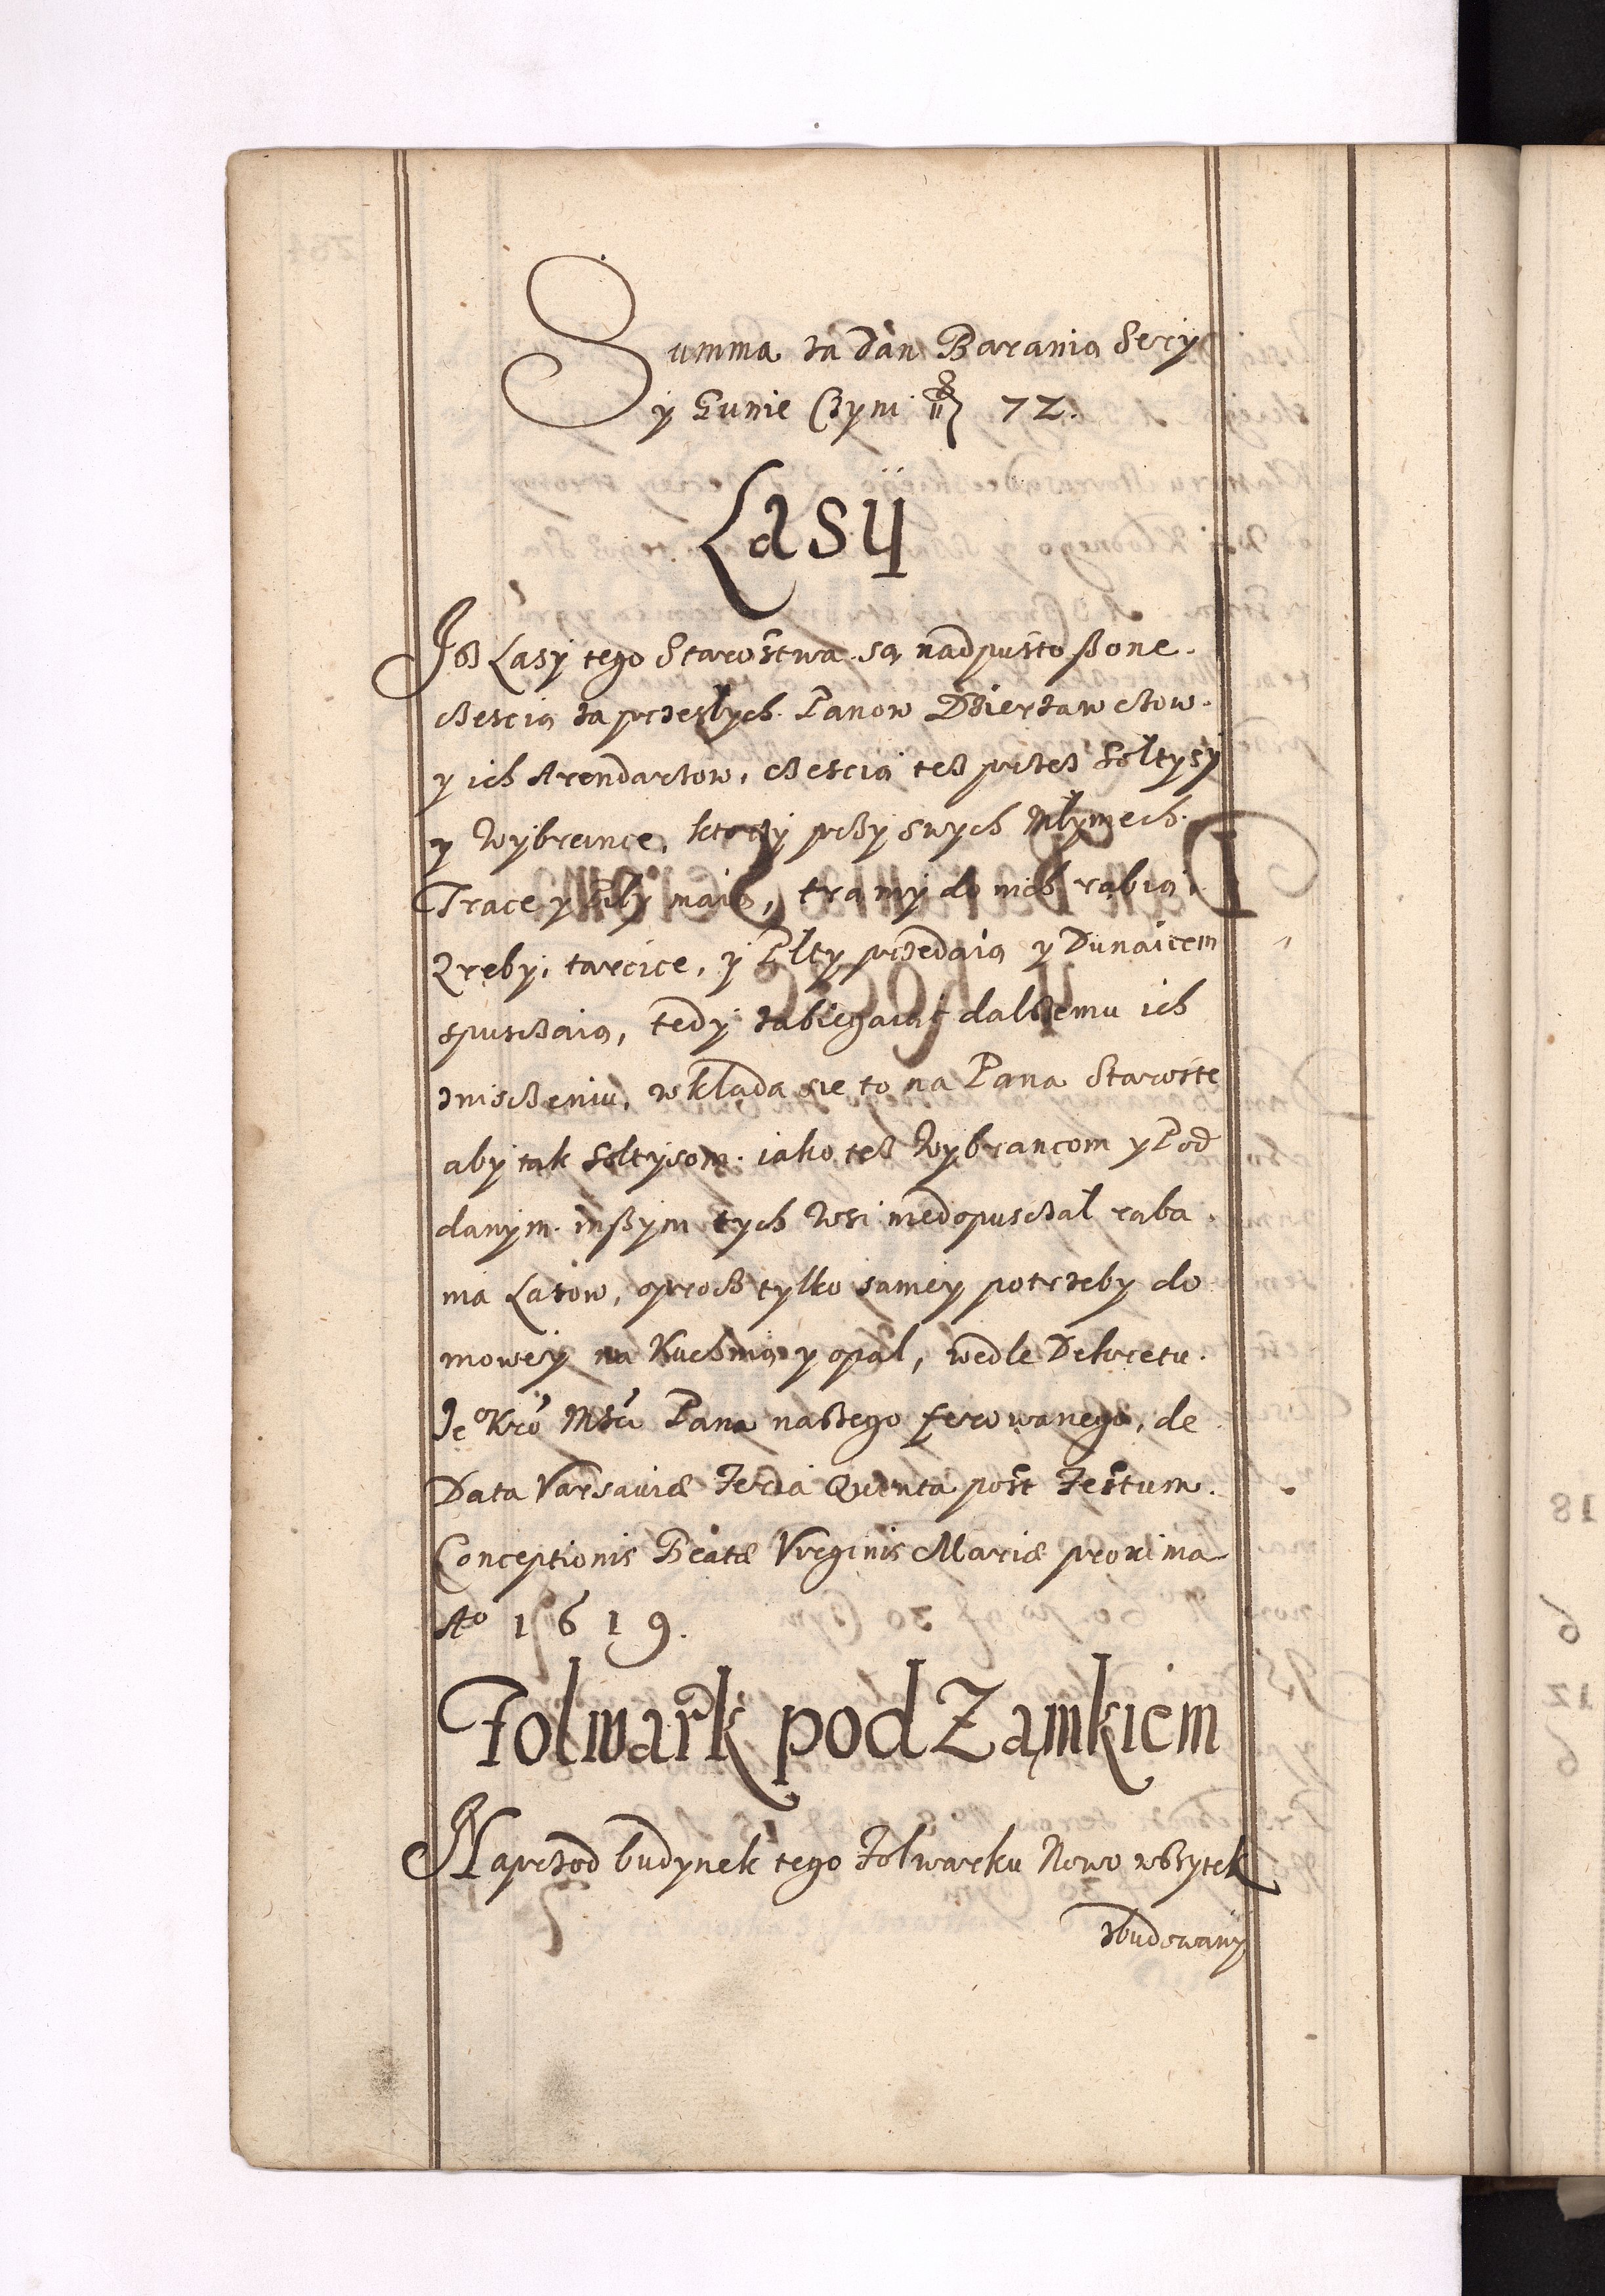 Summa za dan Baranią Sery
y Gunie Czyni 72.
Lasy
Jß Lasy tego Starostwa. są nadpustoßone.
cżescią za przeszlych. Panow Dzierżawczow.
y ich Arendarzow, cżescią też przeż Soltysy
y Wybrance, ktorzy przy swych Mlynech.
Trace y Pily maią, tramy do nich rąbią,
Zręby, tarcice, y Plty przedaią y Dunaicem
spusczaią, tedy zabiegaiąc dalszemu ich
zniszczeniu, wklada sie to na Pana Staroste
aby tak Soltysom. iako też Wybrancom y Pod
danym. inßym tych Wsi niedopusczal rąba.
nia Lasow, oprocż tylko samey potrzeby do
mowey na Kuchnią y opal, wedle Dekretu.
Je⁰ Kro Msci Pana naszego ferowanego, de
Data Varsaviæ Feria Quinta post Festum.
Conceptionis Beatæ Virginis Mariæ proxima
A⁰ 1619.
Folwark pod Zamkiem
Naprzod budynek tego Folwarku Nowo wszytek
zbudowany
18
6
12
6